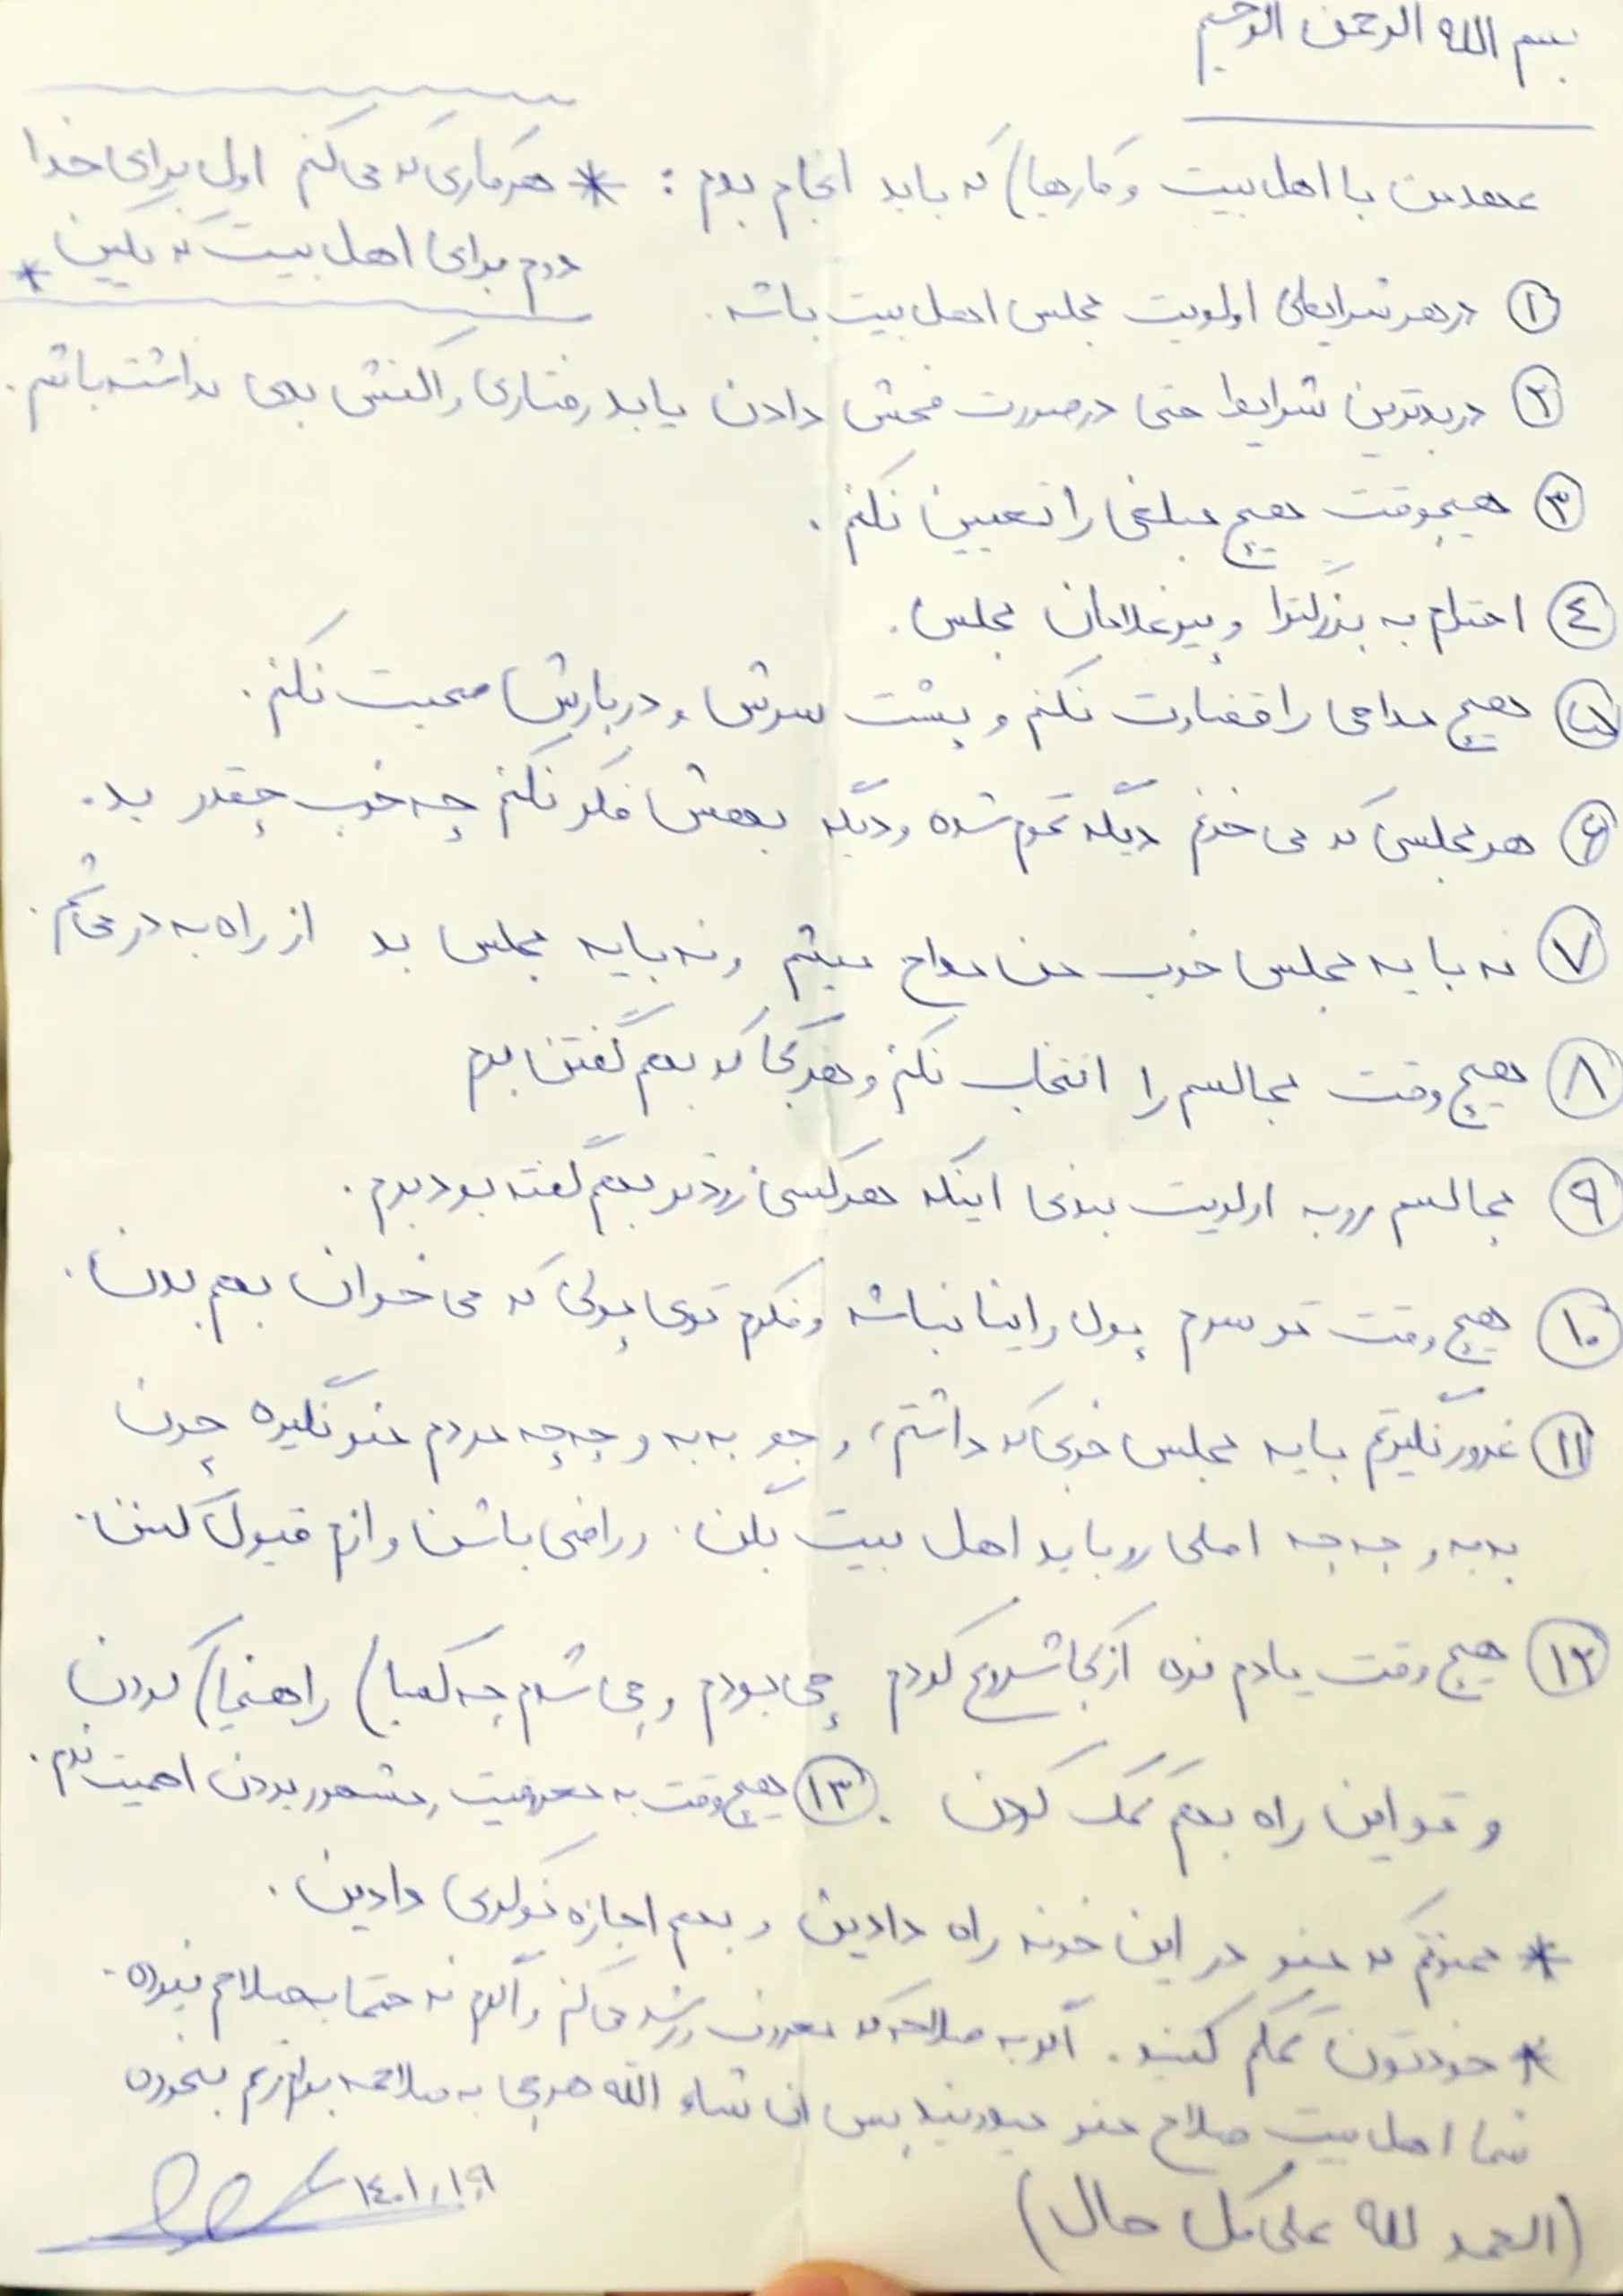 بسم الله الرحمن الرحیم
عهد من با اهل بیت و کارهایی که باید انجام بدم : * هر کاری که می کنم اول برای خدا
دوم برای اهل بیت که بگین *
① در هر شرایطی اولویت مجلس اهل بیت باشه .
② در بدترین شرایط حتی در صورت فحش دادن یا بد رفتاری واکنش بدی نداشته باشم .
③ هیچوقت هیچ مبلغی را تعیین نکنم .
④ احترام به بزرگترا و پیرغلامان مجلس .
⑤ هیچ مداحی را قضاوت نکنم و پشت سرش و دربارش صحبت نکنم .
⑥ هر مجلسی که می خونم دیگه تموم شده و دیگه بهش فکر نکنم چه خوب چقدر بد .
⑦ نه با یه مجلس خوب من مداح میشم و نه با یه مجلس بد از راه به در می شم .
⑧ هیچ وقت مجالسم را انتخاب نکنم و هر کجا که بهم گفتن برم
⑨ مجالسم رو به اولویت بندی اینکه هر کسی زودتر بهم گفته بود برم .
⑩ هیچ وقت تو سرم پول و اینا نباشه و فکرم توی پولی که می خوان بهم بدن .
⑪ غرور نگیرتم با یه مجلس خوبی که داشتم ، و جو به به و چه چه مردم منو نگیره چون
به به و چه چه اصلی رو باید اهل بیت بگن . و راضی باشن و ازم قبول کنن .
⑫ هیچ وقت یادم نره از کجا شروع کردم چی بودم و چی شدم چه کسایی راهنمایی کردن
و تو این راه بهم کمک کردن . ⑬ هیچ وقت به معروفیت و مشهور بودن اهمیت ندم .
* ممنونم که منو در این خونه راه دادین و بهم اجازه نوکری دادین .
* خودتون کمکم کنید . اگر به صلاحمه که معروف و رشد می کنم و اگرم نه حتما به صلاحم نبوده .
شما اهل بیت صلاح منو میدونید پس ان شاء الله هر چی به صلاحمه برام رقم بخوره
(الحمد لله علی کل حال)
۱۴۰۱/۱/۱۹